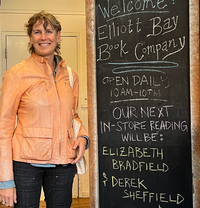 Welcome!
Elliott Bay
Book Company
OPEN DAILY
10AM-10PM
OUR NEXT
IN-STORE READING
WILL BE:
ELIZABETH
BRADFIELD
& DEREK
SHEFFIELD